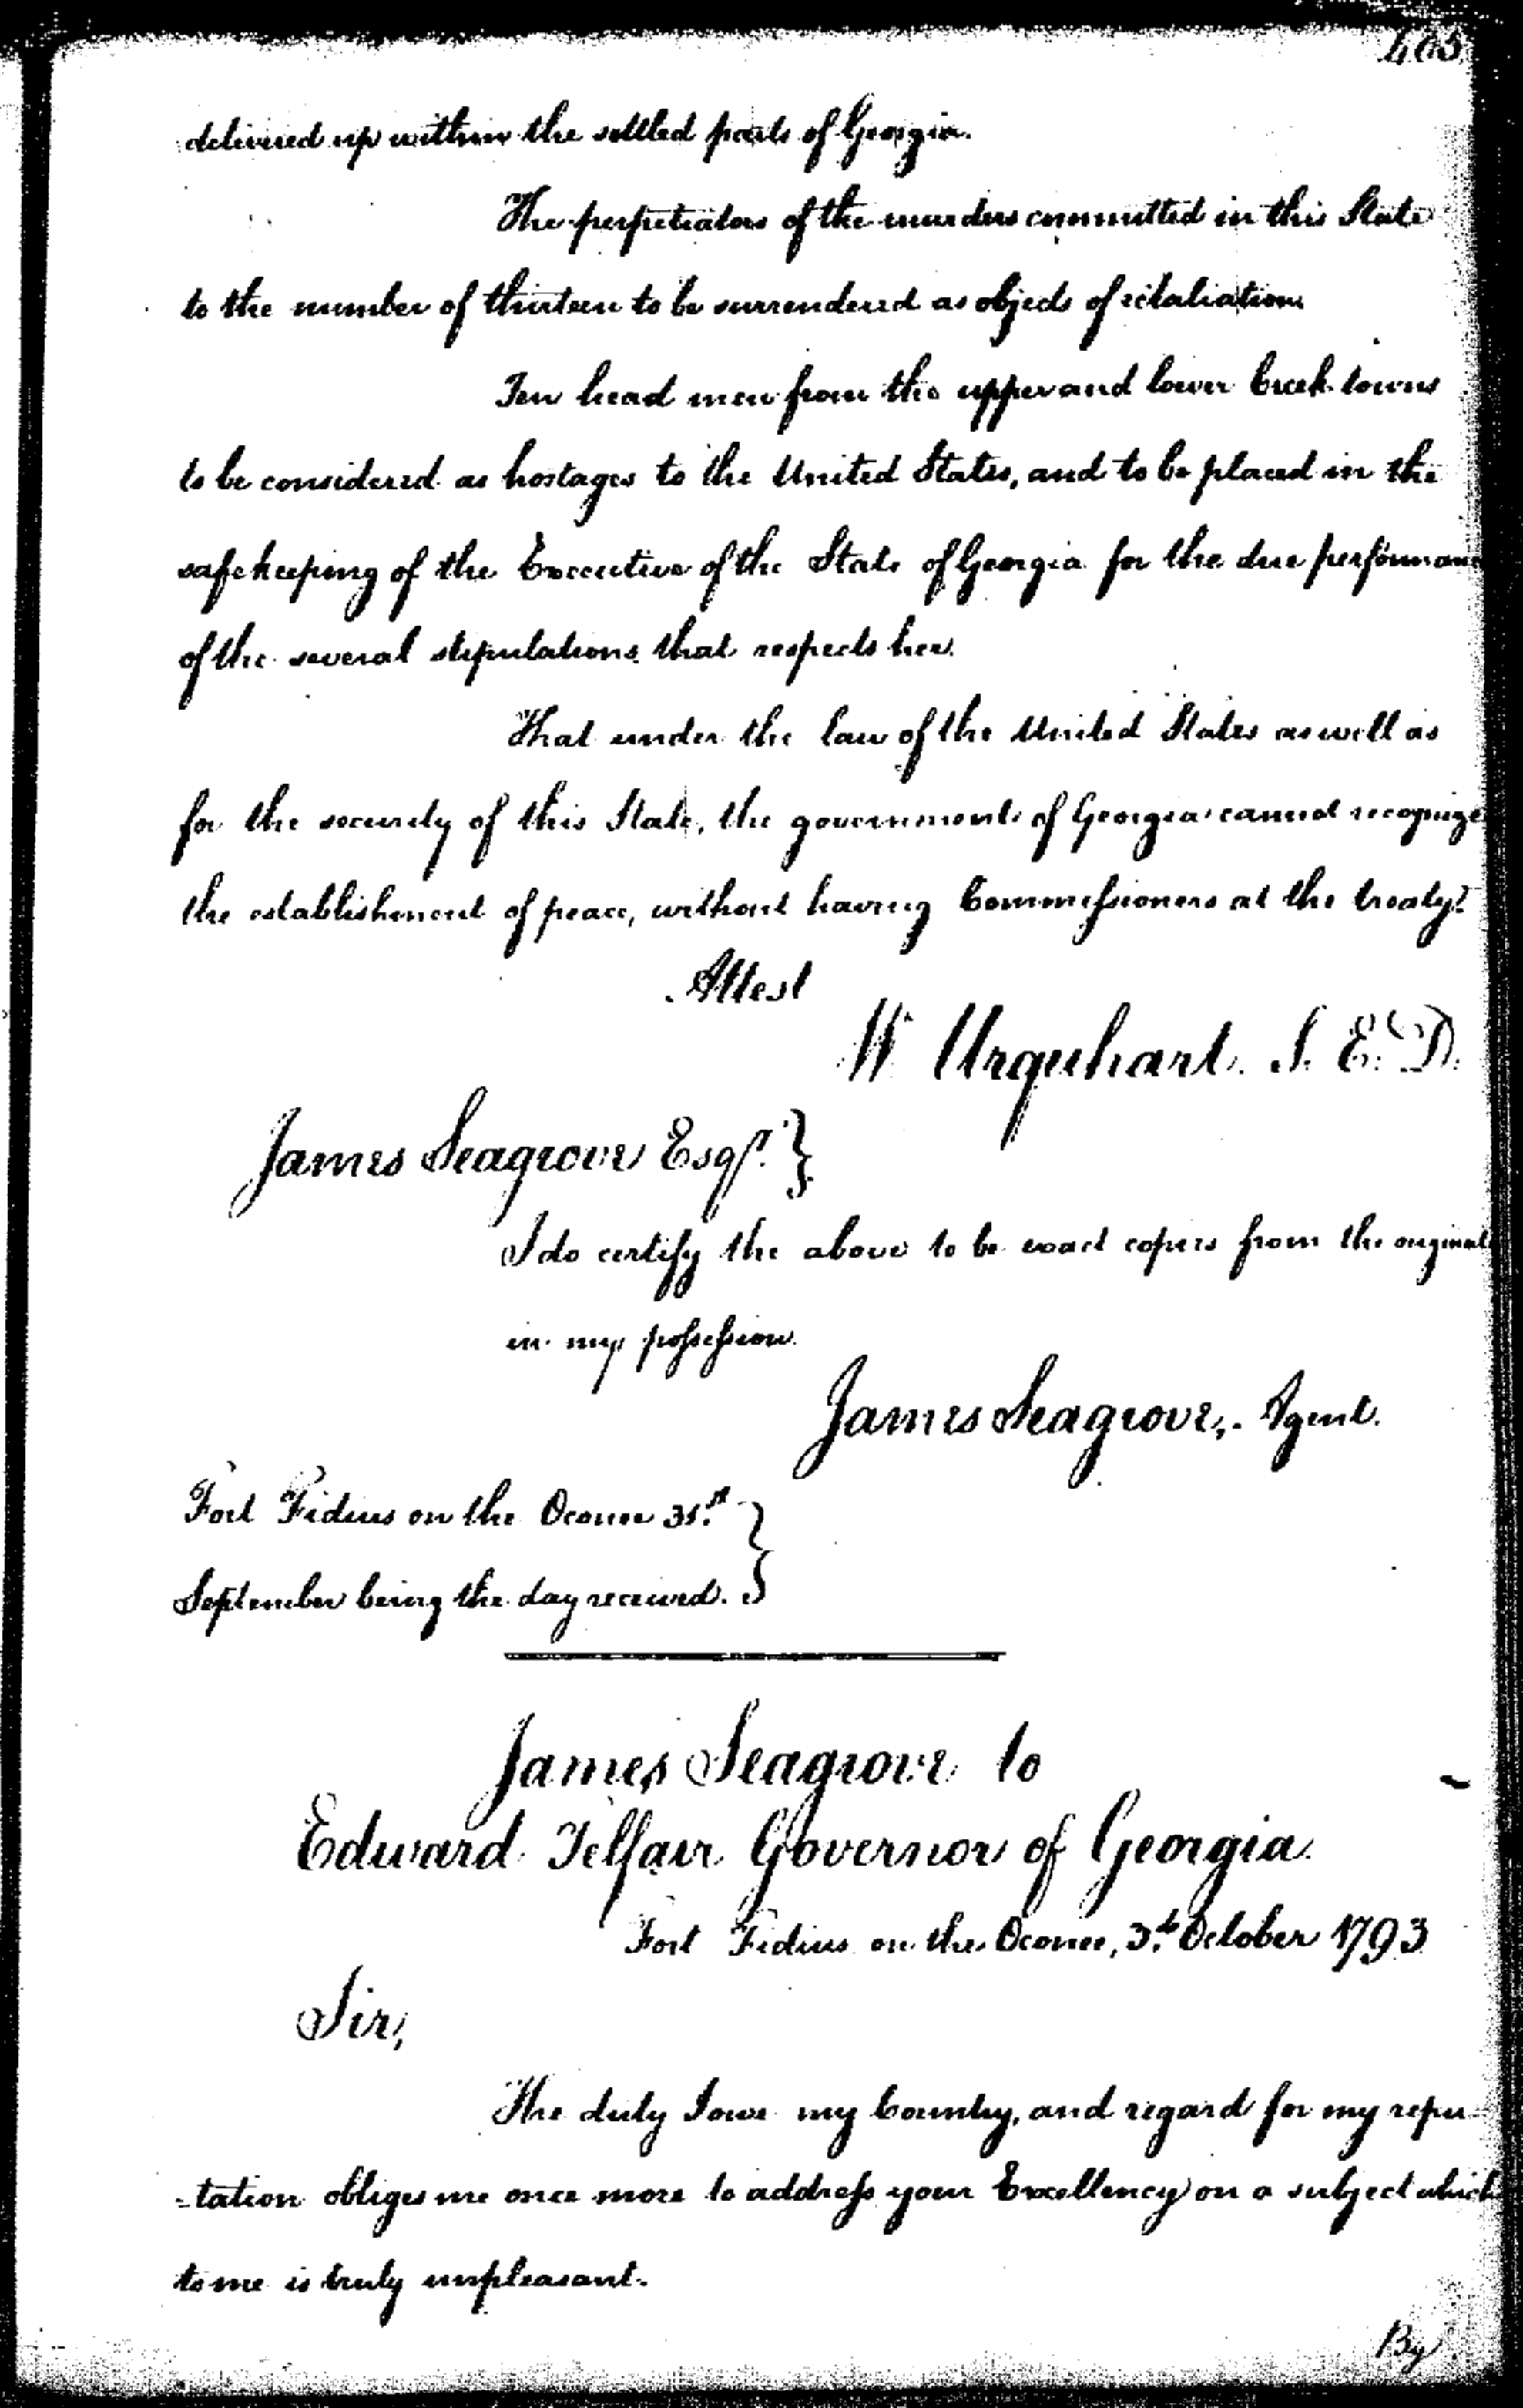 465
delivered up within the settled parts of Georgia.
The perpetrators of the murders committed in this State
to the number of thirteen to be surrendered as objects of retaliation
Ten head men from the upper and lower Creek towns
to be considered as hostages to the United States, and to be placed in the
safe keeping of the Executive of the State of Georgia for the due performance
of the several stipulations that respects her.
That under the law of the United States as well as
for the security of this State, the government of Georgia cannot recognize
the establishment of peace, without having Commissioners at the treaty?
Attest
W Urquhart. S. E. D.
James Seagrove Esqr. }
I do certify the above to be exact copies from the original
in my possession.
James Seagrove, Agent.
Fort Fidius on the Oconee 31st }
September being the day received.
James Seagrove to
Edward Telfair Governor of Georgia.
Fort Fidius on the Oconee, 3d. October 1793
Sir,
The duty I owe my Country, and regard for my repu-
-tation obliges me once more to address your Excellency on a subject which
to me is truly unpleasant.
By